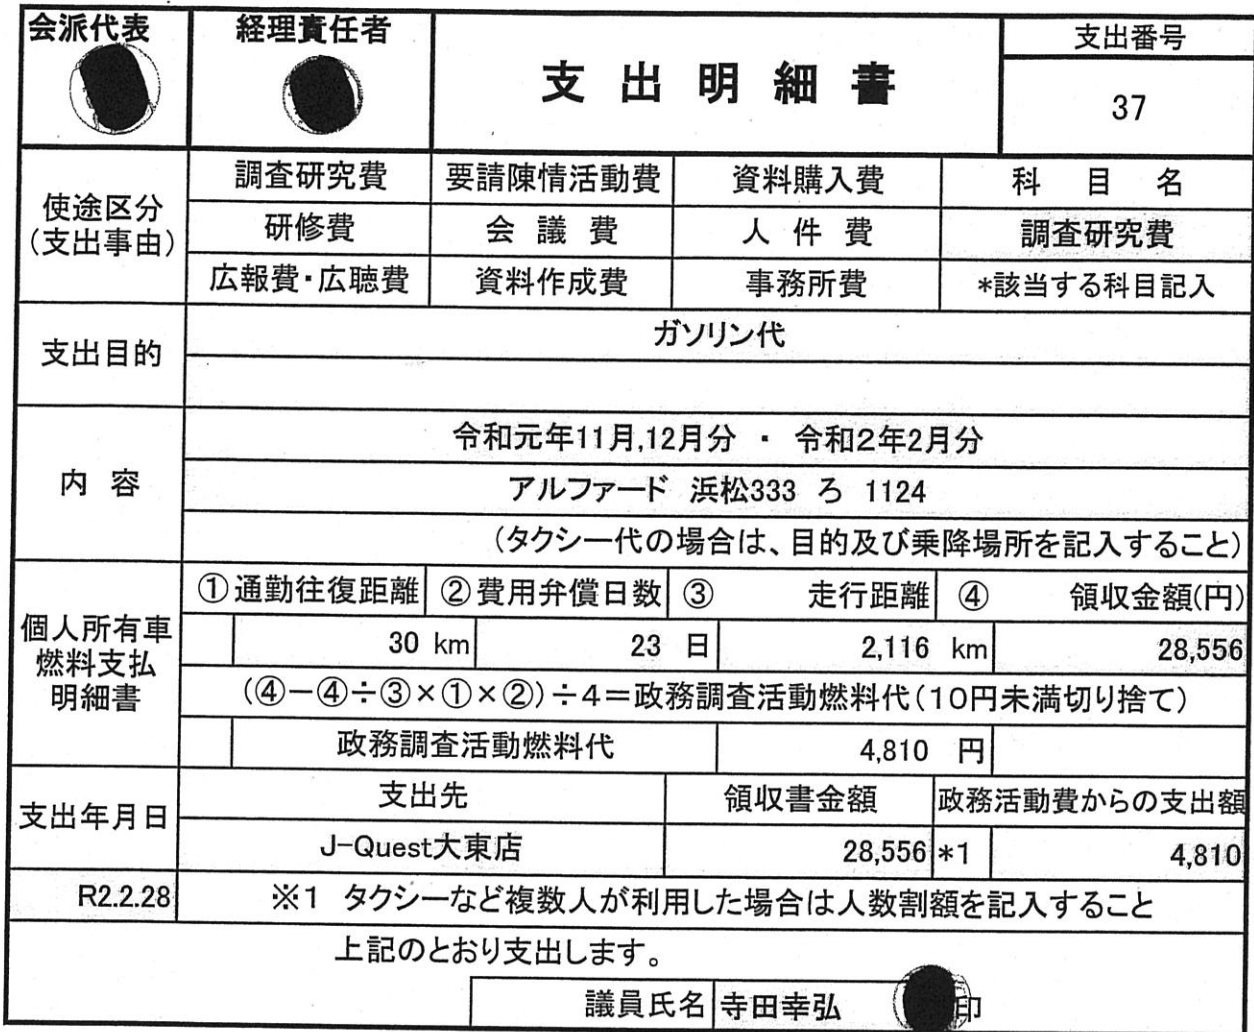 会派代表 経理責任者 支出明細書 支出番号
37
使途区分
(支出事由)
調査研究費 要請陳情活動費 資料購入費 科目名
研修費 会議費 人件費 調査研究費
広報費・広聴費 資料作成費 事務所費 *該当する科目記入
支出目的 ガソリン代
内容
令和元年11月,12月分 ・ 令和2年2月分
アルファード 浜松333 ろ 1124
(タクシー代の場合は、目的及び乗降場所を記入すること)
個人所有車
燃料支払
明細書
①通勤往復距離 ②費用弁償日数 ③ 走行距離 ④ 領収金額(円)
30 km 23 日 2,116 km 28,556
(④-④÷③×①×②)÷4=政務調査活動燃料代(10円未満切り捨て)
政務調査活動燃料代 4,810 円
支出年月日 支出先 領収書金額 政務活動費からの支出額
J-Quest大東店 28,556 *1 4,810
R2.2.28 ※1 タクシーなど複数人が利用した場合は人数割額を記入すること
上記のとおり支出します。
議員氏名 寺田幸弘 印